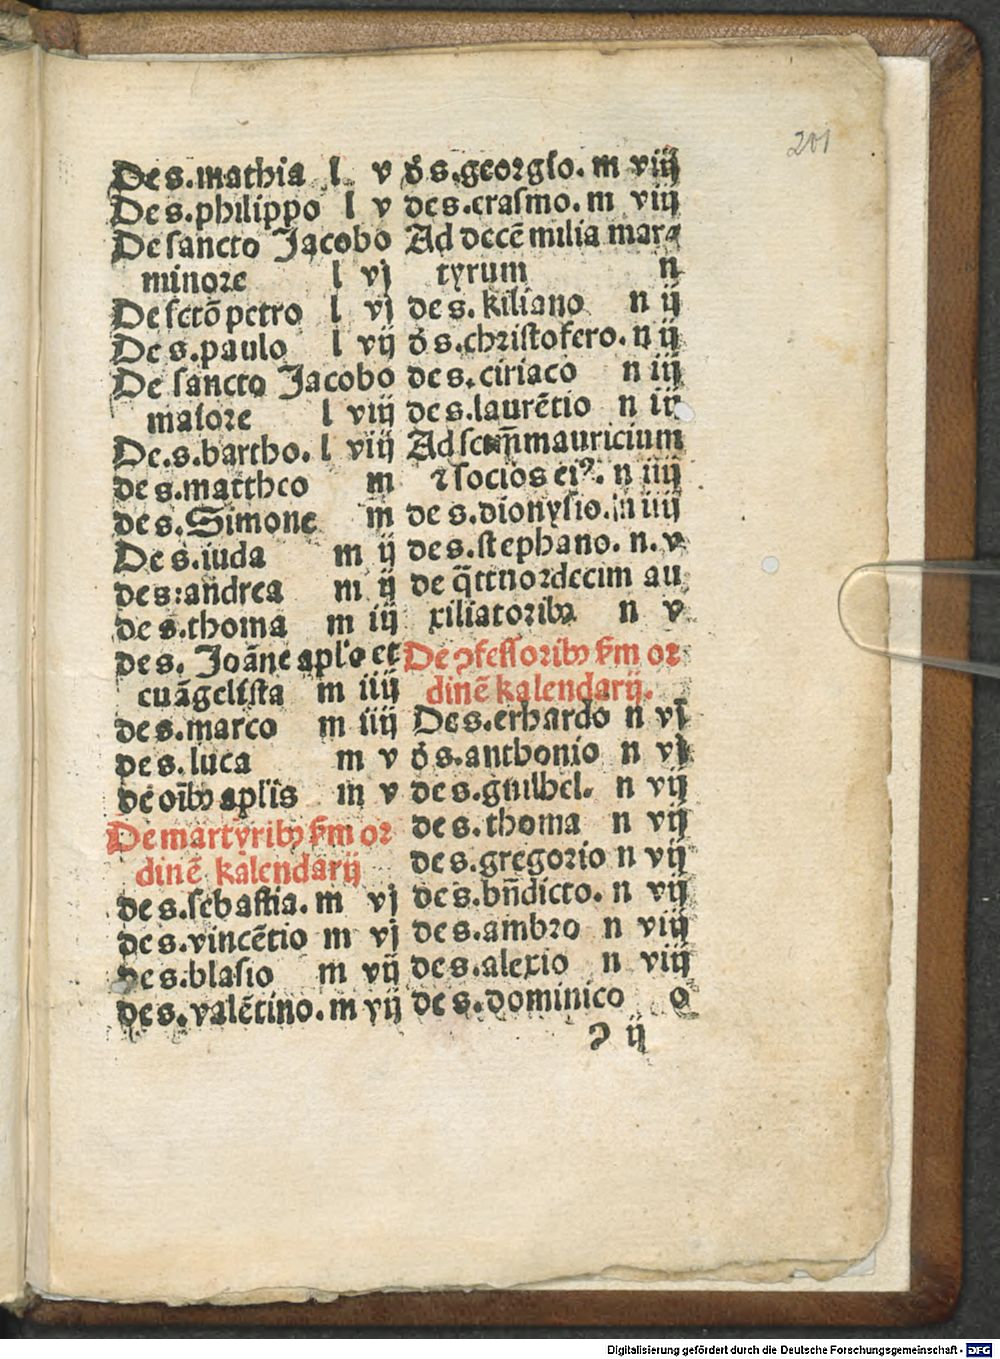 201
De s.mathia l v
De s.philippo l v
De sancto Jacobo
minore l vj
De sctō petro l vj
De s.paulo l vij
De sancto Jacobo
maiore l viij
De.s.bartho. l viij
de s.mattheo m
de s.Simone m
De s.iuda m ij
de s:andrea m ij
de s.thoma m iij
de s. Joāne aplo et
euāgelista m iiij
de s.marco m iiij
de s.luca m v
de oībꝫ aplis m v
De martyribꝫ ẜm or
dinē kalendarij
de s.sebastia. m vj
de s.vincētio m vj
de s.blasio m vij
de s.valētino. m vij
ð s.georgio. m viij
de s.erasmo. m viij
Ad decē milia mar⸗
tyrum n
de s. kiliano n ij
ð s.christofero. n ij
de s.ciriaco n iij
de s.laurētio n iij
Ad sctm̄ mauricium
⁊ socios eiꝰ. n iiij
de s.dionysio. n iiij
de s.stephano. n. v
de q̄ttuordecim au
xiliatoribꝫ n v
De ꝯfessoribꝫ ẜm or
dinē kalendarij.
De s.erhardo n vj
ð s.anthonio n vj
de s.guilhel. n vij
de s.thoma n vij
de s.gregorio n vij
de s.bn̄dicto. n vij
de s.ambro n viij
de s.alexio n viij
de s.dominico o
ꝯ ij
Digitalisierung gefördert durch die Deutsche Forschungsgemeinschaft - DFG